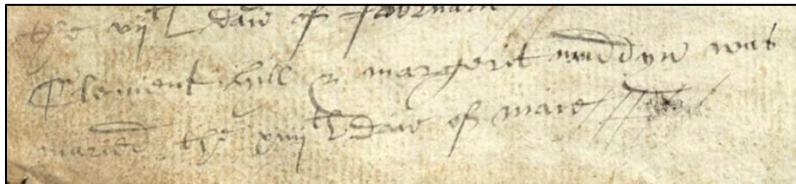 the viith daie of februarie
Clement hill & margerit was
maried the xviiith daie of marc